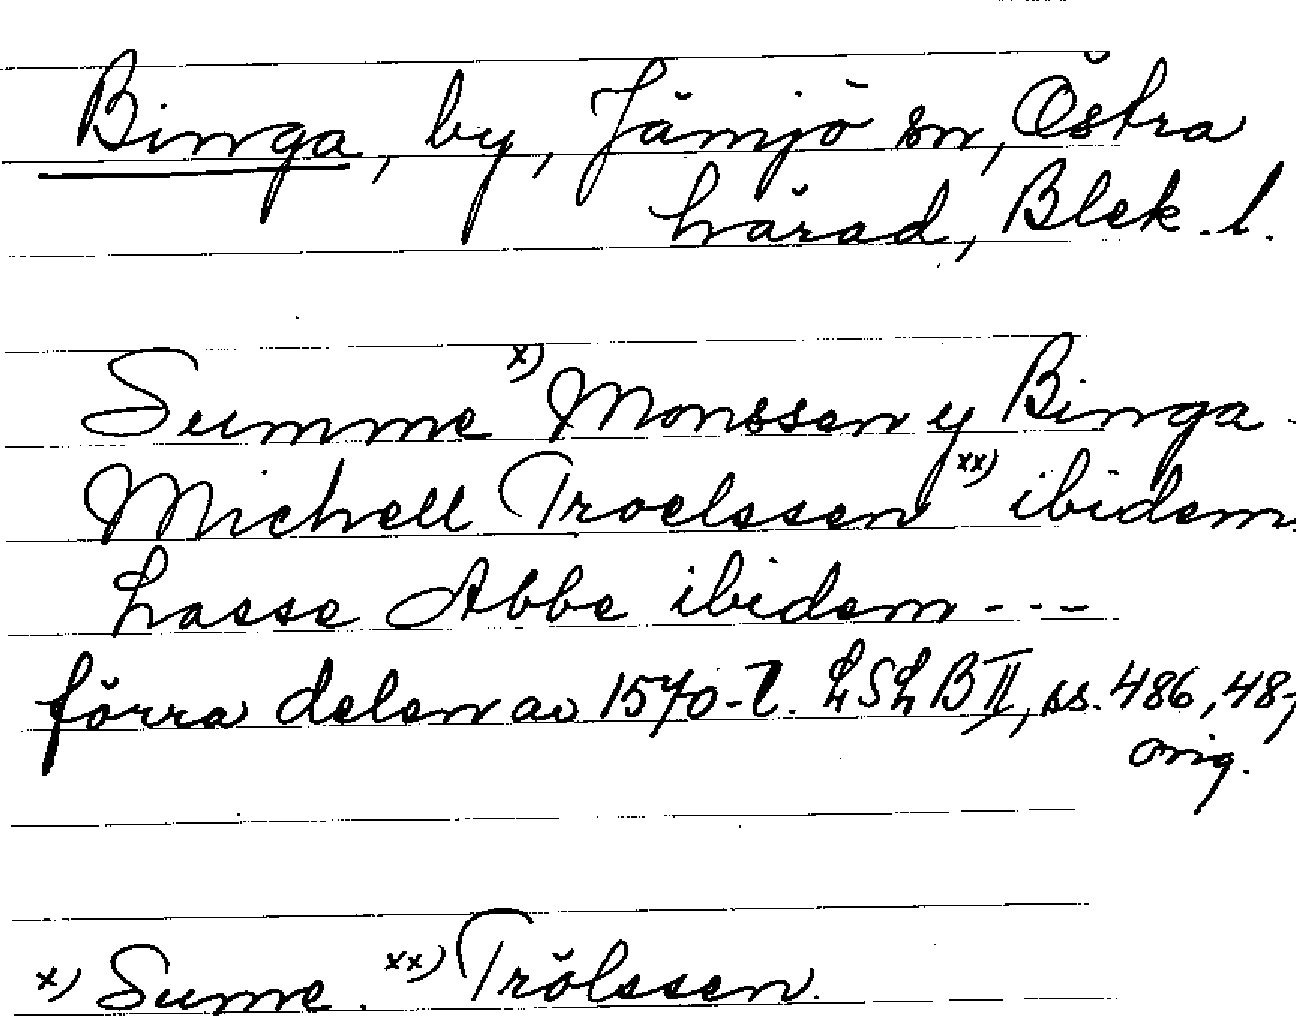 Binga, by, Jämjö sn, Östra
härad, Blek. l.
Summe x) Monssen y Binga -
Michell Troelssen xx) ibidem
Lasse Abbe ibidem ---
förra delen av 1570-t. LSLB II, ss. 486, 48
orig.
x) Sume. xx) Trölssen.